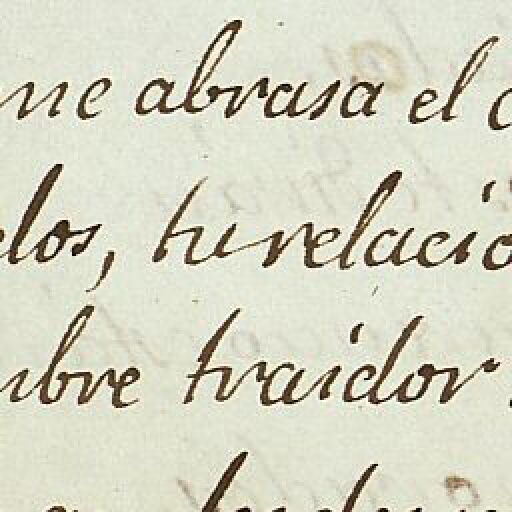 me abrasa el c
elos, tu relacio
mbre traidor.